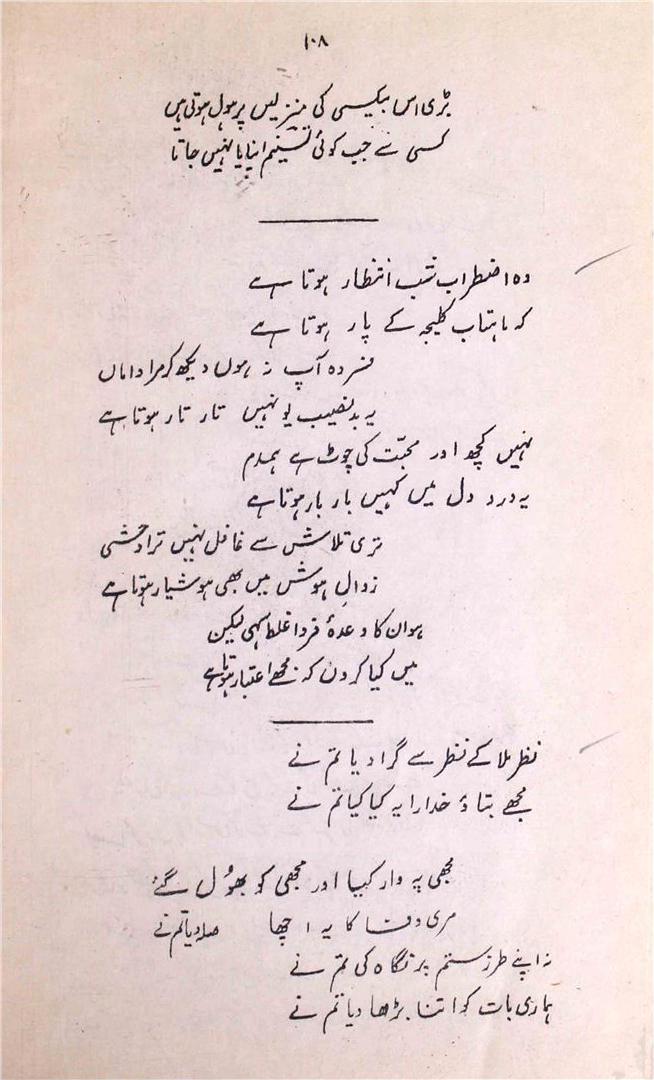 ۱۰۸
بڑی اس بیکسی کی منزلیں پر ہول ہوتی ہیں
کسی سے جب کوئی تسنیم اپنایا نہیں جاتا
وہ اضطراب شب انتظار ہوتا ہے
کہ ماہتاب کلیجہ کے پار ہوتا ہے
فسردہ آپ نہ ہوں دیکھ کر مرا داماں
یہ بدنصیب یونہیں تار تار ہوتا ہے
نہیں کچھ اور محبّت کی چوٹ ہے ہمدم
یہ درد دل میں کہیں بار بار ہوتا ہے
تری تلاش سے غافل نہیں ترا وحشی
زوالِ ہوش میں بھی ہوشیار ہوتا ہے
ہو ان کا وعدۂ فردا غلط سہی لیکن
میں کیا کروں کہ مجھے اعتبار ہوتا ہے
نظر ملا کے نظر سے گرا دیا تم نے
مجھے بتاؤ خدارا یہ کیا کیا تم نے
مجھی پہ وار کیا اور مجھی کو بھُول گئے
مری وفا کا یہ اچھا صلہ دیا تم نے
نہ اپنے طرز ستم پر نگاہ کی تم نے
ہماری بات کو اتنا بڑھا دیا تم نے